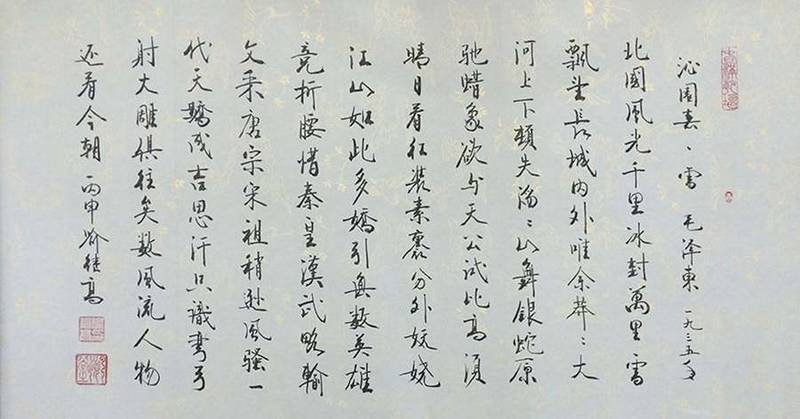 沁園春、雪 毛泽東 一九三五年
北國風光千里冰封萬里雪
飄望長城内外唯余莽〻大
河上下頓失滔〻山舞銀蛇原
驰蜡象欲与天公试比高須
晴日看红装素裹分外妖娆
江山如此多嬌引無数英雄
竞折腰惜秦皇漢武略輸
文采唐宗宋祖稍逊風騷一
代天驕成吉思汗只識彎弓
射大雕俱往矣数風流人物
还看今朝 丙申 喻继高